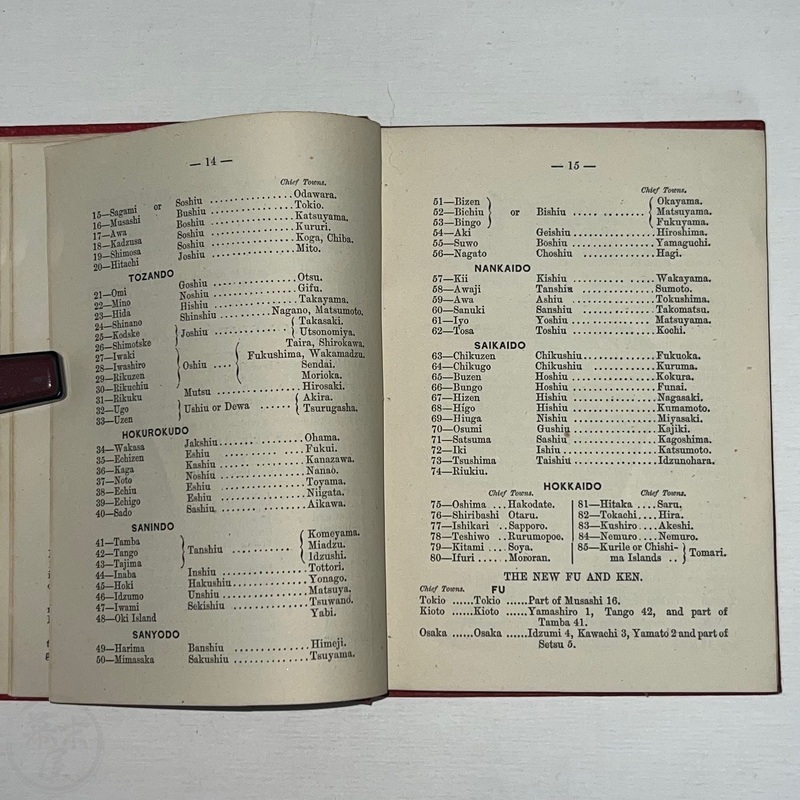 — 14 —
Chief Towns.
15—Sagami or Soshiu ............... Odawara.
16—Musashi Bushiu ............... Tokio.
17—Awa Boshiu ............... Katsuyama.
18—Kadzusa Soshiu ............... Kururi.
19—Shimosa Soshiu ............... Koga, Chiba.
20—Hitachi Joshiu ............... Mito.
TOZANDO
21—Omi Goshiu ............... Otsu.
22—Mino Noshiu ............... Gifu.
23—Hida Hishiu ............... Takayama.
24—Shinano Shinshiu ............ Nagano, Matsumoto.
25—Kodske } Joshiu ......... { Takasaki.
26—Shimotske Utsonomiya.
27—Iwaki } Oshiu .... { Taira, Shirokawa.
28—Iwashiro Fukushima, Wakamadzu.
29—Rikuzen Sendai.
30—Rikuchiu Morioka.
31—Rikuku Mutsu ............... Hirosaki.
32—Ugo } Ushiu or Dewa ...... { Akira.
33—Uzen Tsurugasha.
HOKUROKUDO
34—Wakasa Jakshiu ............... Ohama.
35—Echizen Eshiu ............... Fukui.
36—Kaga Kashiu ............... Kanazawa.
37—Noto Noshiu ............... Nanao.
38—Echiu Eshiu ............... Toyama.
39—Echigo Eshiu ............... Niigata.
40—Sado Sashiu ............... Aikawa.
SANINDO
41—Tamba } Tanshiu ............ { Komeyama.
42—Tango Miadzu.
43—Tajima Idzushi.
44—Inaba Inshiu ............... Tottori.
45—Hoki Hakushiu ............... Yonago.
46—Idzumo Unshiu ............... Matsuya.
47—Iwami Sekishiu ............... Tsuwano.
48—Oki Island Yabi.
SANYODO
49—Harima Banshiu ............... Himeji.
50—Mimasaka Sakushiu ............... Tsuyama.
— 15 —
Chief Towns.
51—Bizen } or Bishiu ..... ........ { Okayama.
52—Bichiu Matsuyama.
53—Bingo Fukuyama.
54—Aki Geishiu ............... Hiroshima.
55—Suwo Boshiu ............... Yamaguchi.
56—Nagato Choshiu ............... Hagi.
NANKAIDO
57—Kii Kishiu ............... Wakayama.
58—Awaji Tanshiu ............... Sumoto.
59—Awa Ashiu ............... Tokushima.
60—Sanuki Sanshiu ............... Takomatsu.
61—Iyo Yoshiu ............... Matsuyama.
62—Tosa Toshiu ............... Kochi.
SAIKAIDO
63—Chikuzen Chikushiu ............... Fukuoka.
64—Chikugo Chikushiu ............... Kuruma.
65—Buzen Hoshiu ............... Kokura.
66—Bungo Hoshiu ............... Funai.
67—Hizen Hishiu ............... Nagasaki.
68—Higo Hishiu ............... Kumamoto.
69—Hiuga Nishiu ............... Miyasaki.
70—Osumi Gushiu ............... Kajiki.
71—Satsuma Sashiu ............... Kagoshima.
72—Iki Ishiu ............... Katsumoto.
73—Tsushima Taishiu ............... Idzunohara.
74—Riukiu.
HOKKAIDO
Chief Towns. Chief Towns.
75—Oshima ... Hakodate. 81—Hitaka .... Saru.
76—Shiribashi Otaru. 82—Tokachi.... Hira.
77—Ishikari .. Sapporo. 83—Kushiro.... Akeshi.
78—Teshiwo .. Rurumopoe. 84—Nemuro.... Nemuro.
79—Kitami .... Soya. 85—Kurile or Chishi- } Tomari.
80—Ifuri ...... Monoran. ma Islands ..
THE NEW FU AND KEN.
Chief Towns. FU
Tokio ......Tokio ......Part of Musashi 16.
Kioto ......Kioto ......Yamashiro 1, Tango 42, and part of
Tamba 41.
Osaka ......Osaka ......Idzumi 4, Kawachi 3, Yamato 2 and part of
Setsu 5.